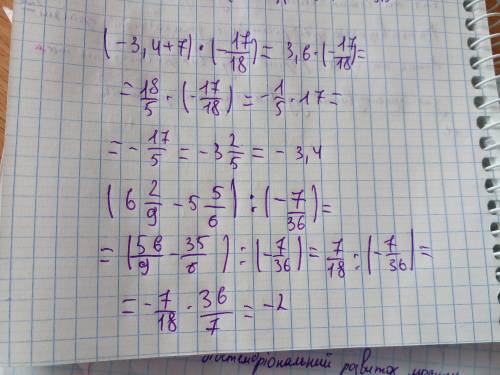 (-3,4+7)·(-17/18)=3,6·(-17/18)=
=18/5·(-17/18)=-1/5·17=
=-17/5=-3 2/5=-3,4
(6 2/9-5 5/6):(-7/36)=
=(56/9-35/6):(-7/36)=7/18:(-7/36)=
=-7/18·36/7=-2
розвиток